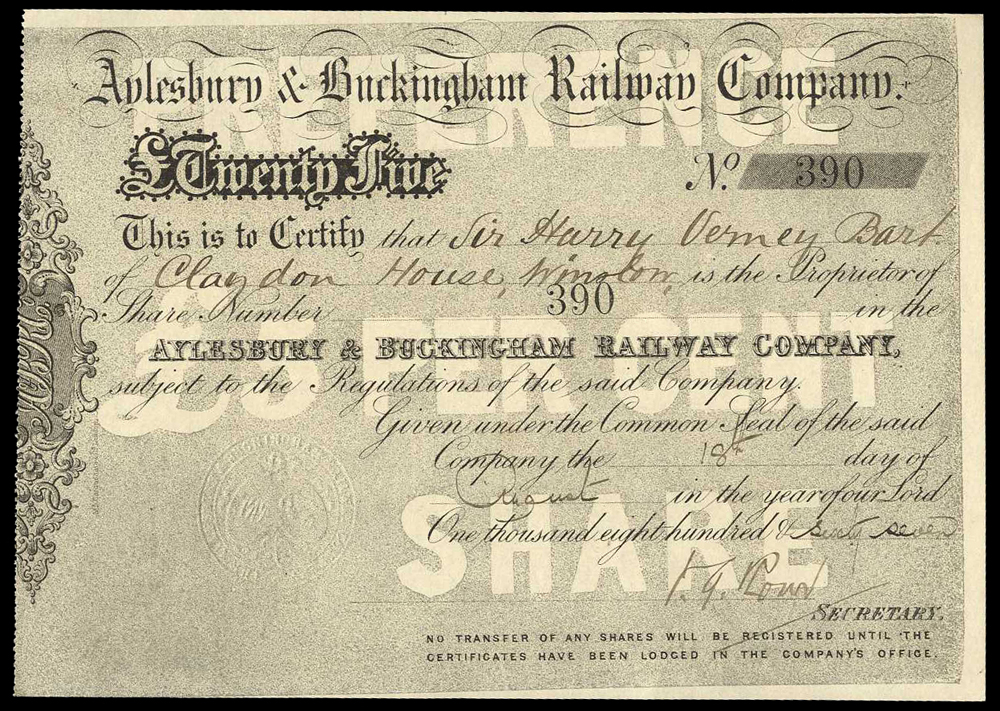 PREFERENCE
Aylesbury & Buckingham Railway Company.
£Twenty Five
No. 390
This is to Certify that Sir Harry Verney Bart.
of Claydon House, Winslow, is the Proprietor of
Share Number 390 in the
AYLESBURY & BUCKINGHAM RAILWAY COMPANY,
£5 PER CENT
subject to the Regulations of the said Company.
Given under the Common Seal of the said
Company the 18th day of
August in the year of our Lord
One thousand eight hundred & sixty seven
SHARE
SECRETARY.
NO TRANSFER OF ANY SHARES WILL BE REGISTERED UNTIL THE
CERTIFICATES HAVE BEEN LODGED IN THE COMPANY'S OFFICE.